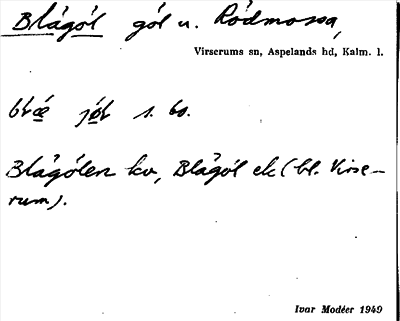 Blågöl göl u. Rödmossa,
Virserums sn, Aspelands hd, Kalm. l.
s. bs.
Blågölen kv, Blågöl ek (bl. Virse-
rum).
Ivar Modéer 1949